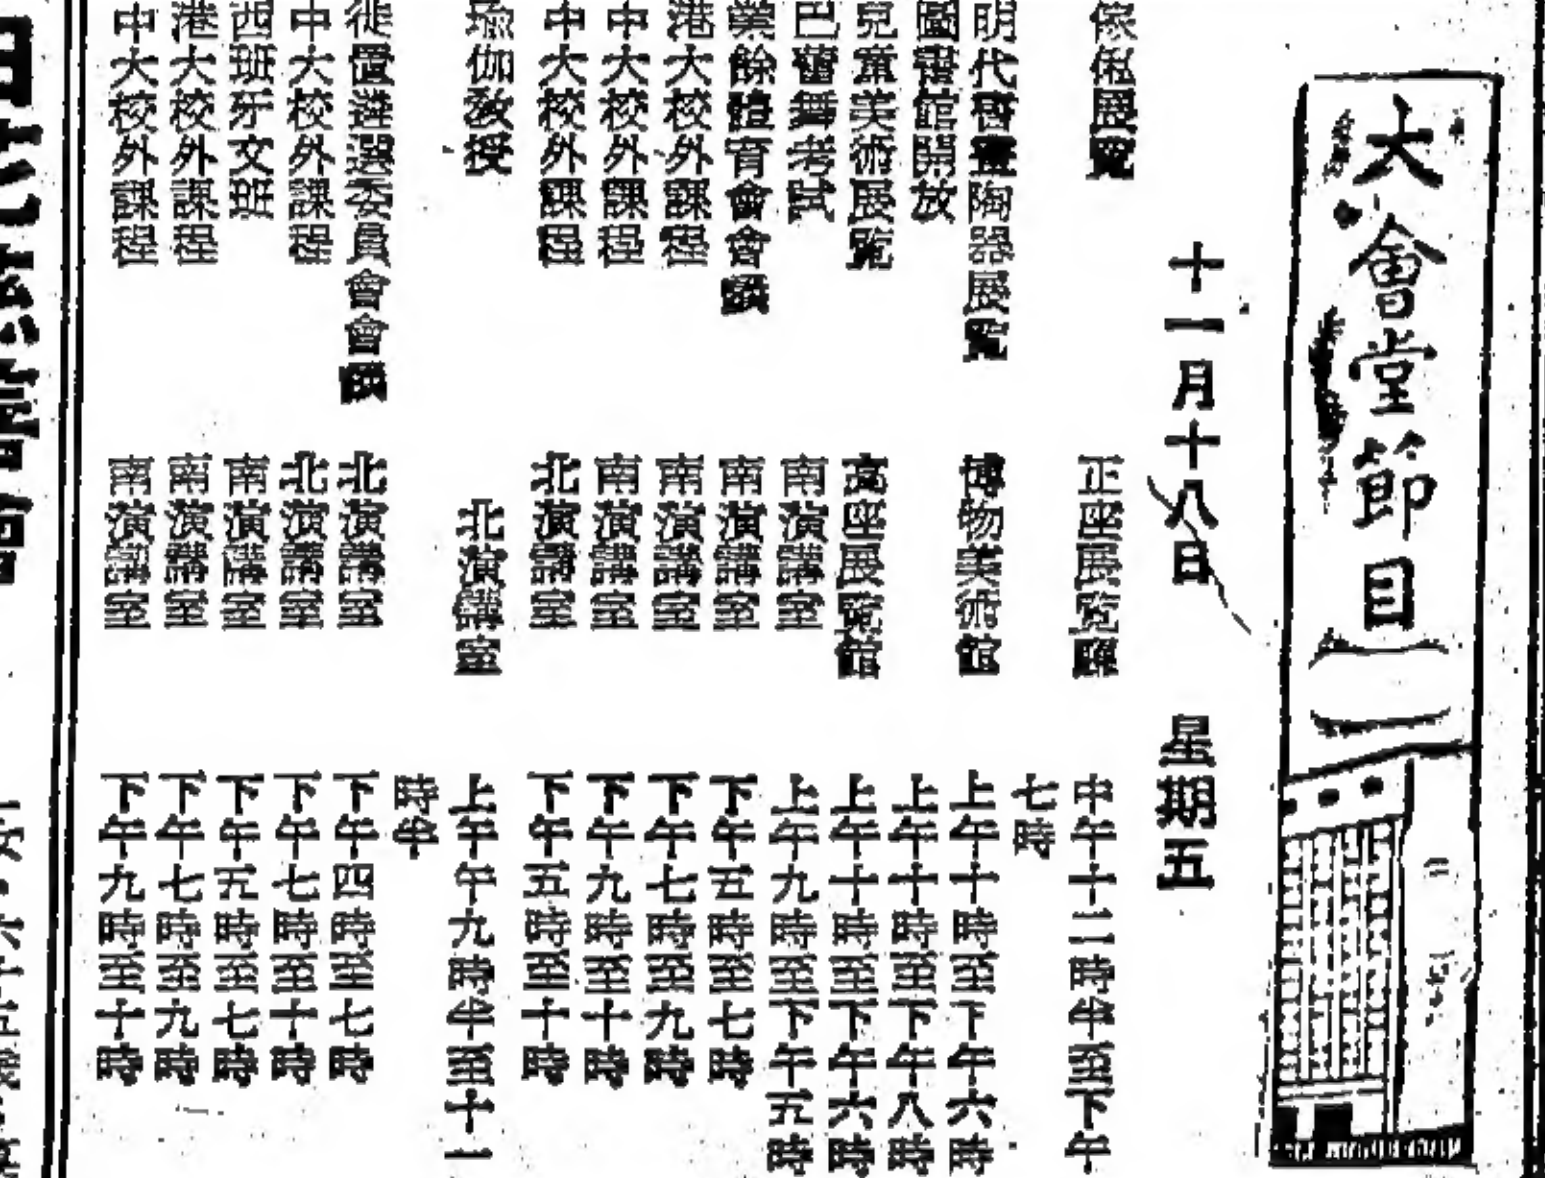 大會堂節目
十一月十八日　星期五
傢俬展覽　正座展覽廳　中午十二時半至下午
七時
明代審畫陶器展覽　博物美術館　上午十時至下午六時
圖書館開放　上午十時至下午八時
兒童美術展覽　高座展覽館　上午十時至下午六時
巴蕾舞考試　南演講室　上午九時至下午五時
業餘體育會會議　南演講室　下午五時至七時
港大校外課程　南演講室　下午七時至九時
中大校外課程　南演講室　下午九時至十時
中大校外課程　北演講室　下午五時至十時
瑜伽教授　北演講室　上午九時半至十一
時半
徙置遴選委員會會議　北演講室　下午四時至七時
中大校外課程　北演講室　下午七時至十時
西班牙文班　南演講室　下午五時至七時
港大校外課程　南演講室　下午七時至九時
中大校外課程　南演講室　下午九時至十時